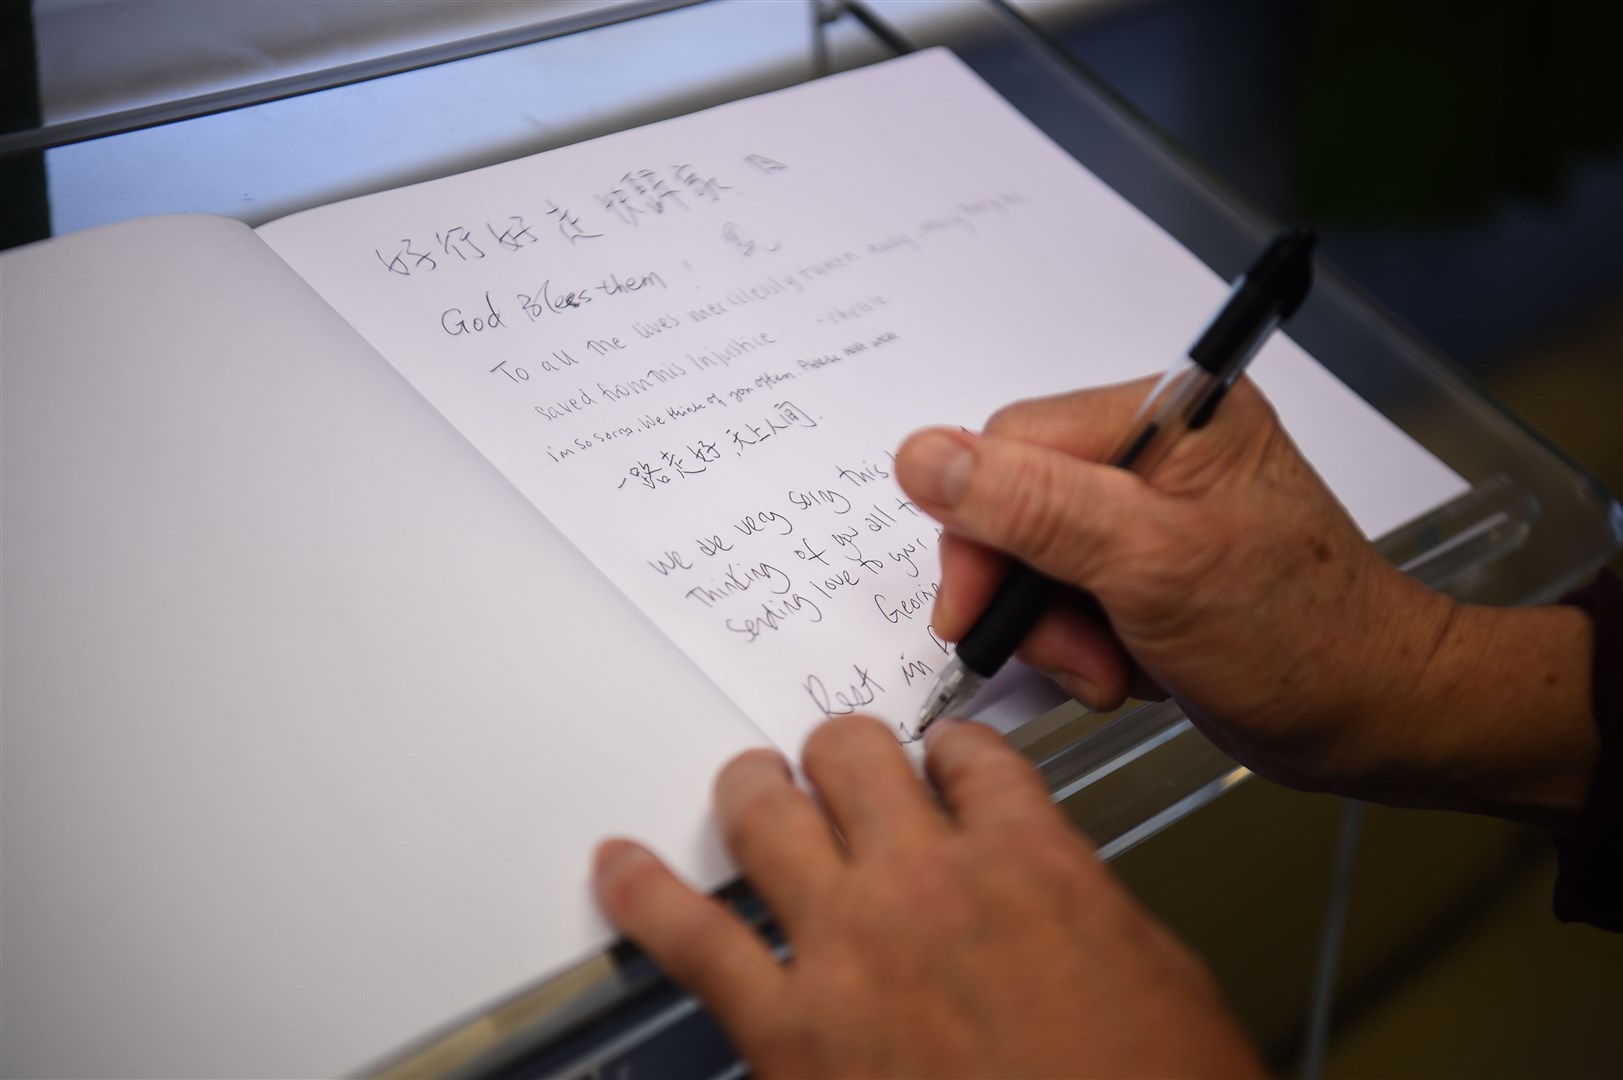 好行好走
God Bless them !
To all the lives mercilessly taken away, may they be
saved from this injustice - Chelsie
im so sorry. We think of you often. Please rest well
一路走好,天上人间.
We are very sorry this
Thinking of you all
Sending love to your
Rest in